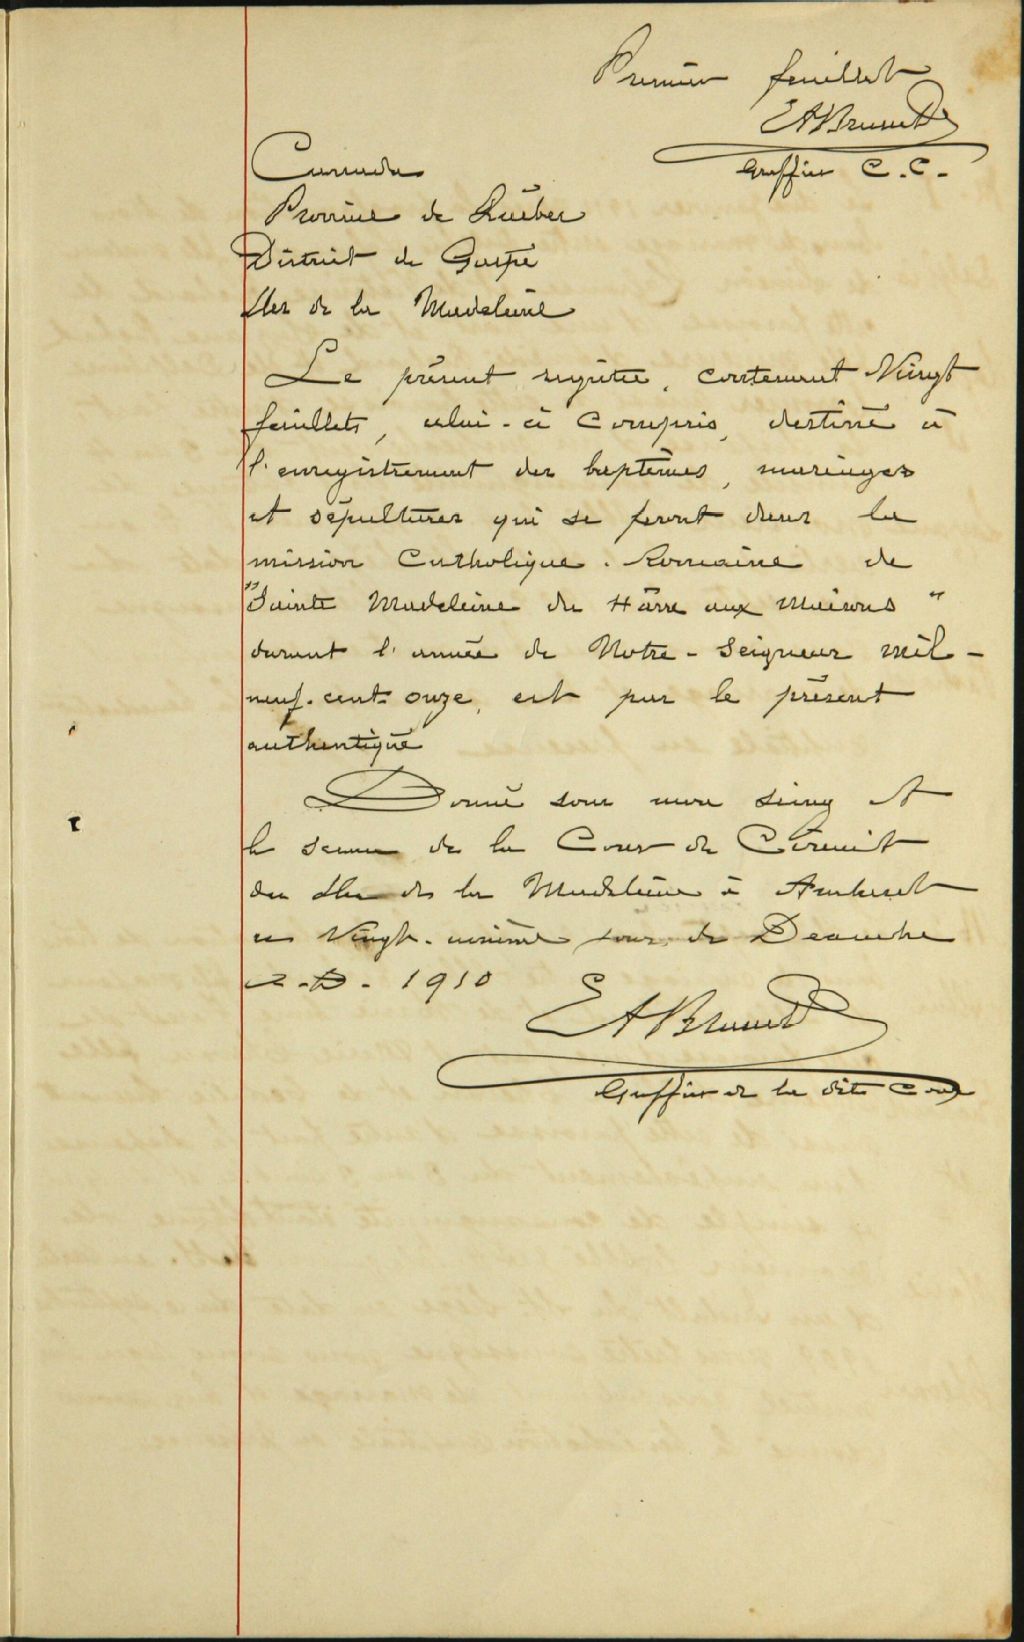 Premier feuillet
EABrunet
Greffier C.C.
Canada
Province de Québec
District de Gaspé
Iles de la Madeleine
Le présent registre, contenant Vingt
feuillets, celui-ci compris, destiné à
l'enregistrement des baptêmes, mariages
et sépultures qui se feront dans la
mission Catholique-Romaine de
"Sainte Madeleine du Hâvre aux Maisons"
durant l'année de Notre-Seigneur mil-
neuf-cent-onze, est par le présent
authentiqué
Donné sous mon seing et
le sceau de la Cour de Circuit
des Iles de la Madeleine à Amherst
ce Vingt- jour de Décembre
A.D. 1910
EABrunet
Greffier de la dite Cour